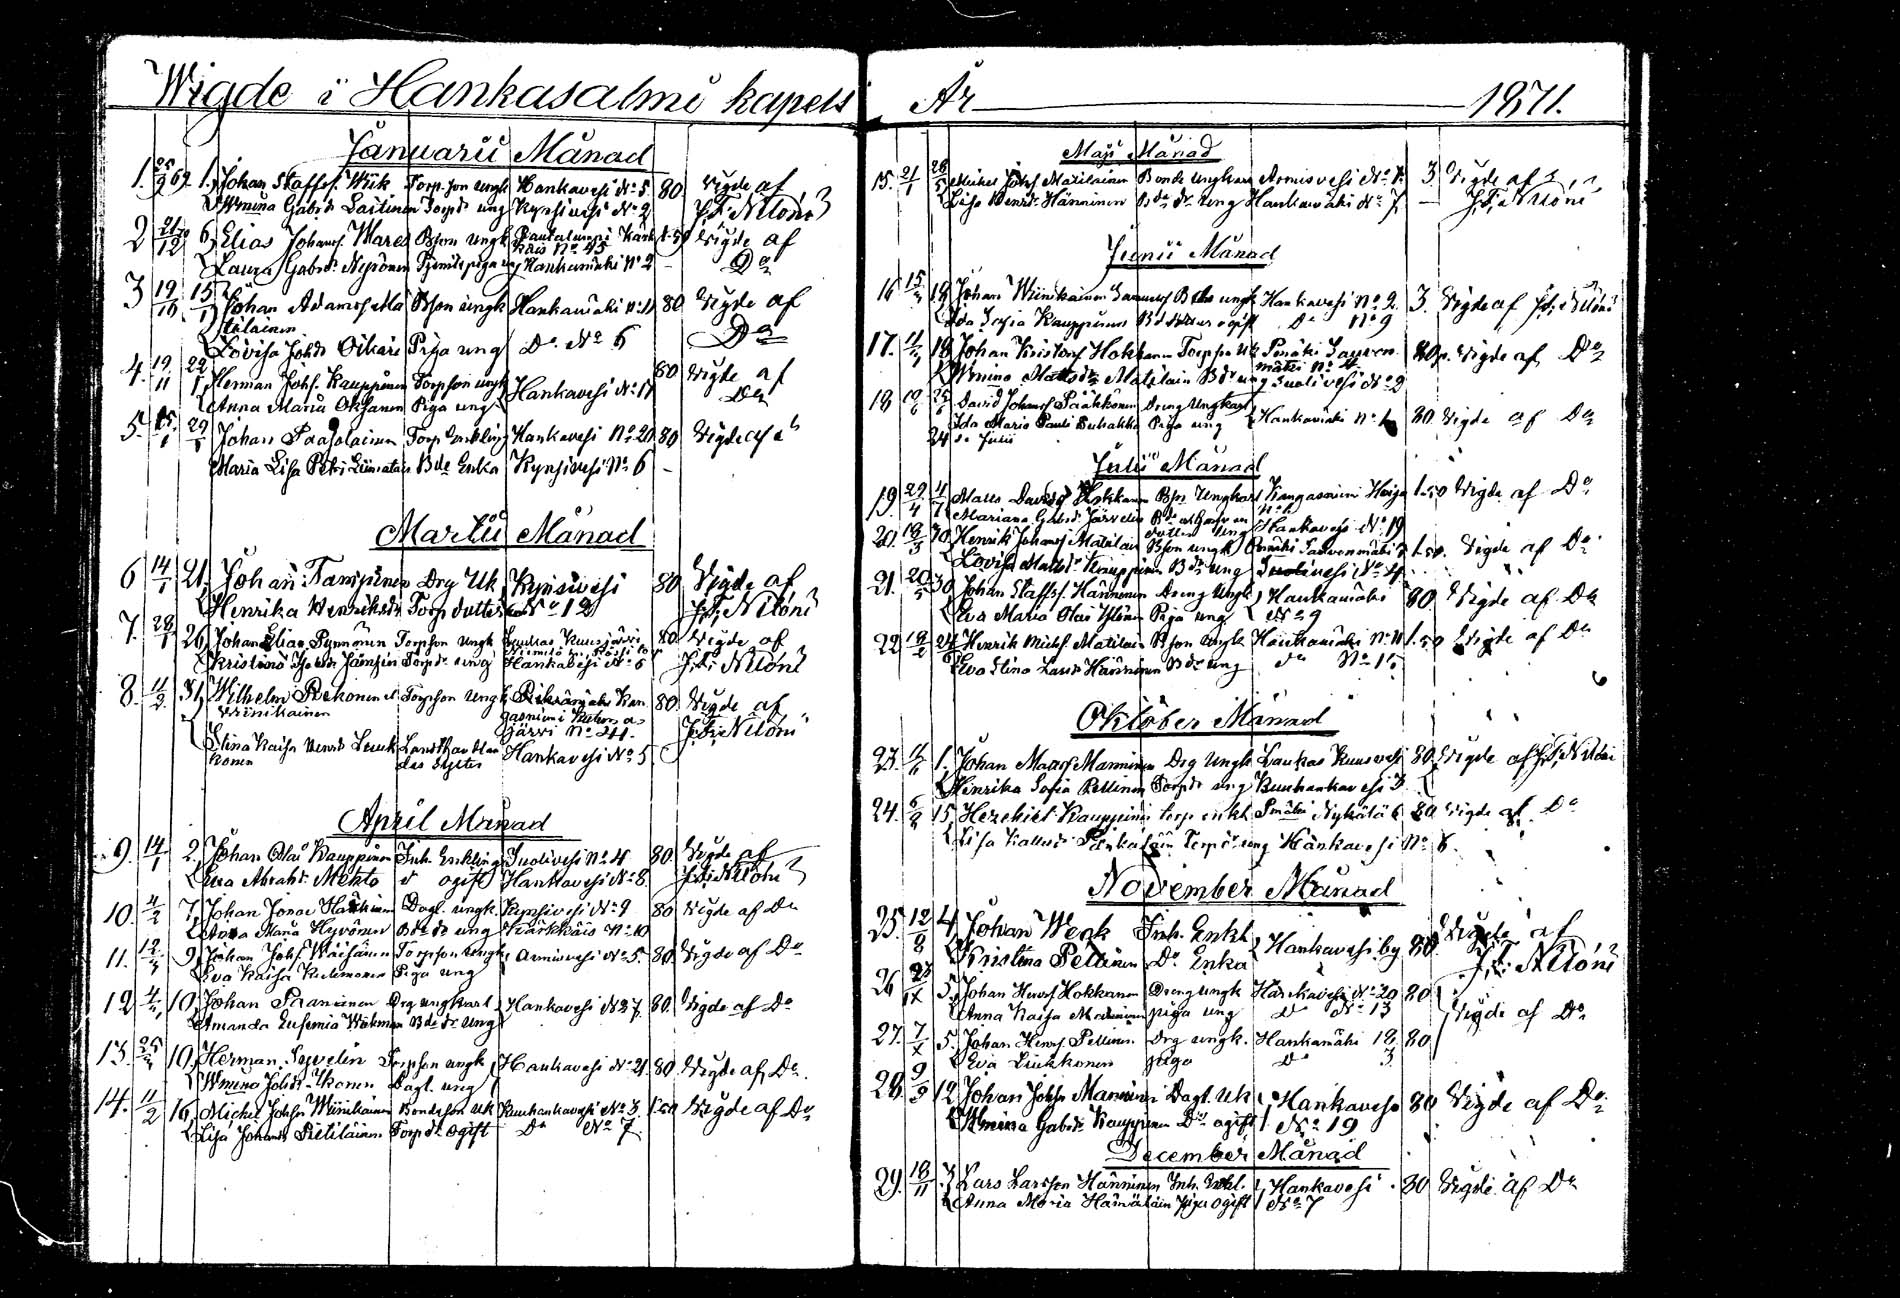 Wigde i Hankasalmi kapell År 1871.
Januarii Månad
1. 25/9 69 1. Johan Staffsf. Wiik Torp. son ungk Hankavesi No 5 80. Vigde af
Wmina Gabrds Laitinen Torpdr ung Kynsivesi No 2 J. F. Niloni
2 6 Elias Johansf. Wares Bson ungk Rautalampi Kärk 1-50 Vigde af
kais No 45
Laura Gabrds Nyrönen piga ung Hankamäki No 2 - Do
3 19/10 15/1 Johan Adamsf Ma Bson ungk Hankamäki No 11 80 Vigde af
tilainen
Lovisa Johds Oikari Piga ung Do No 6 Do
4. 19/11 22/1 Herman Johsf. Kauppinen Torpson ungk Hankavesi No 17 80 Vigde af
Anna Maria Oksanen Piga ung Do
5. 29/1 Johan Paajolainen Torp Enkling Hankavesi No 20 80 Vigde af
Maria Lisa Petri Liimatain Bde Enka Kynsivesi No 6 -
Martii Månad
6 14/1 21. Johan Tamminen Drg Uk Kynsivesi 80 Vigde af
Henrika Henriksdr Torp dotter No 12 J. F. Niloni
7. 28/1 26 Johan Elias Pynnönen Torpson Ungk Laukas Kuusjärvi 80 Vigde af
Kristina Jämsen Torpdr ung Hankavesi No 6 J. F. Niloni
8. 11/2 31 Wilhelm Rekonen Torpson Ungk Kan 80 Vigde af
Winikainen gasniemi
järvi No 24. J. F. Niloni
Stina Kaisa Henrds Leuk Landthandlan Hankavesi No 5
konen des dotter
April Månad
9. 14/1 2. Johan Olai Kauppinen Inh. Enkling Suolivesi No 4 80. Vigde af
Eva Abrahds Mehto ogift Hankavesi No 8. J. F. Niloni
10. 4/2 7 Johan Jonae Dagl. ungk Kynsivesi No 9 80 Vigde af Do
Anna Maria Hyvönen Bdedr ung Kärkkäis No 10
11. 9 Johan Johsf. Väisänen Torpson ungk Armisvesi No 5. 80 Vigde af Do
Eva Kaisa Kulmonen Piga ung
12 10. Johan Paananen Drg ungkarl Hankavesi No 80. Vigde af Do
Amanda Eufemia Wikman Bdedr Ung
13. 10. Herman Syvelin Torpson ungk Hankavesi No 21. 80 Vigde af Do
Wmina Johds Ikonen Dagl. ung
14. 11/2 16 Michel Johsn Winikainen Bondeson Uk Kuuhankavesi No 3. 1-50 Vigde af Do
Lisa Johands Pietiläinen Torpdr ogift Do No 7
Maji Månad
15. 21/1 28/5 Michel Johsf Matilainen Bonde Ungkarl Armisvesi No 7. 3. Vigde af
Lisa Henrds. Hänninen Bdedr Ung Hankamäki No 7 - J. F. Niloni
Junii Månad
16 18 Johan Winikainen ungk Hankavesi No 2. 3. Vigde af J. F. Niloni
Ida Sofia Kauppinen ogift Do No 9
17. 18 Johan Kristofsf Hokkanen Torpson Uk Pmäki Sauven 80p. Vigde af Do
mäki No 4.
Wmina Mattsdr Matilain Bdr ung Suolivesi No 2
18 25/6 David Johansf Pääkkönen Dreng Ungkarl Hankamäki No 80 Vigde af Do
Ida Maria Pauli Puhakka Piga ung
24 Julii
Julii Månad
19. 29/4 Matts Davidsf Hokkanen Bson Ungkarl Kangasniemi 1-50 Vigde af Do
Mariana Gabrds Järvelin Hankavesi No 19
dotter ung
20. 30 Henrik Johansf Matilain Bson ungk Pmäki Sauvenmäki 7 1-50. Vigde af Do
Lovisa Mattsdr Kauppinen Bdr ung Suolivesi No 4
21. 30 Johan Staffsf. Hänninen Dreng Ungk Hankamäki 80 Vigde af Do
Eva Maria Olai Ylönen Piga ung No 9
22 24 Henrik Michsf. Matilain Bson ungk Hankamäki No 11 1-50 Vigde af Do
Eva Stina Larsds Hänninen Bdr ung do No 15
Oktober Månad
23. 1. Johan Mattsf Manninen Drg Ungk Laukas Kuusvesi 80 Vigde af J. F. Niloni
Henrika Sofia Pellinen Torpdr ung Kuuhankavesi 3
24. 15 Hezekiel Kauppinen Torp enkl Pmäki Nykälä 6 80 Vigde af Do
Lisa Kallesdr Torpdr ung Hankavesi No 6.
November Månad
25. 12/8 4 Johan Werk Inh. Enkl Hankavesi by 80. Vigde af
Kristina Pellinen Do Enka J. F. Niloni
26 5. Johan Henrsf Hokkanen Dreng ungk Hankavesi No 20 80
Anna Kaisa piga ung Do No 13 Vigde af Do
27. 7/X 5. Johan Henrsf. Pellinen Drg ungk. Hankamäki 18 80
Eva Liukkonen piga do 3
28 9/9 12 Johan Johsn Manninen Dagl. Uk Hankavesi 80 Vigde af Do
Wmina Gabrds Kauppinen Do ogift No 19
December Månad
29. 18/11 3 Lars Larsson Hänninen Inh. Enkl. Hankavesi 80 Vigde af Do
Anna Maria Hämäläin Piga ogift No 7